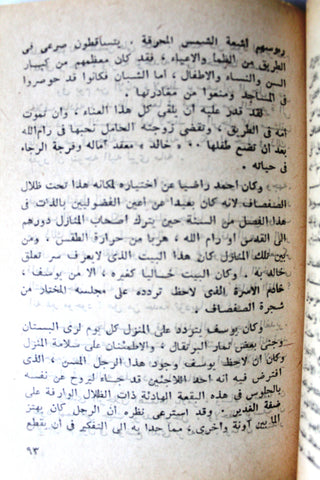 رءوسهم أشعة الشمس المحرقة . يتساقطون صرعى فى
الطريق من الظما والاعياء ، فقد كان معظمهم من كبار
السن والنساء والاطفال ، أما الشبان فكانوا قد حوصروا
فى المساجد ومنعوا من مغادرتها .
لقد قدر عليه أن يلقى كل هذا العناء ، وأن تموت
أمه فى الطريق ، وتقضى زوجته الحامل نحبها فى رام الله
بعد أن تضع طفلها ٠٠ « خالد » معقد آماله وفرحة الرجاء
فى حياته .
وكان أحمد راضيا عن اختياره لمكانه هذا تحت ظلال
الصفصاف لانه كان بعيدا عن أعين الفضوليين بالذات فى
هذا الفصل من السنة حين يترك أصحاب المنازل دورهم
الى القدس أو رام الله ، هربا من حرارة الطقس . ومن
بين تلك المنازل كان هذا البيت الذى لا يعرف سر تعلق
خالد به . وكان البيت خاليا كغيره ، الا من يوسف ،
خادم الأسرة الذى لاحظ تردده على مجلسه المختار من
شجرة الصفصاف .
وكان يوسف يتردد على المنزل كل يوم لرى البستان
وجنى بعض ثمار البرتقال ، والاطمئنان على سلامة المنزل
وكان أن لاحظ يوسف وجود هذا الرجل المسن ، الذى
افترض فيه أنه أحد اللاجئين قد جاء ليروح عن نفسه
بالجلوس فى هذه البقعة الهادئة ذات الظلال الوارفة على
ضفة الغدير . وقد استرعى نظره أن الرجل كان يهتز
ألما بين آونة وأخرى ، مما حدا به الى التفكير فى أن يقطع
٩٣